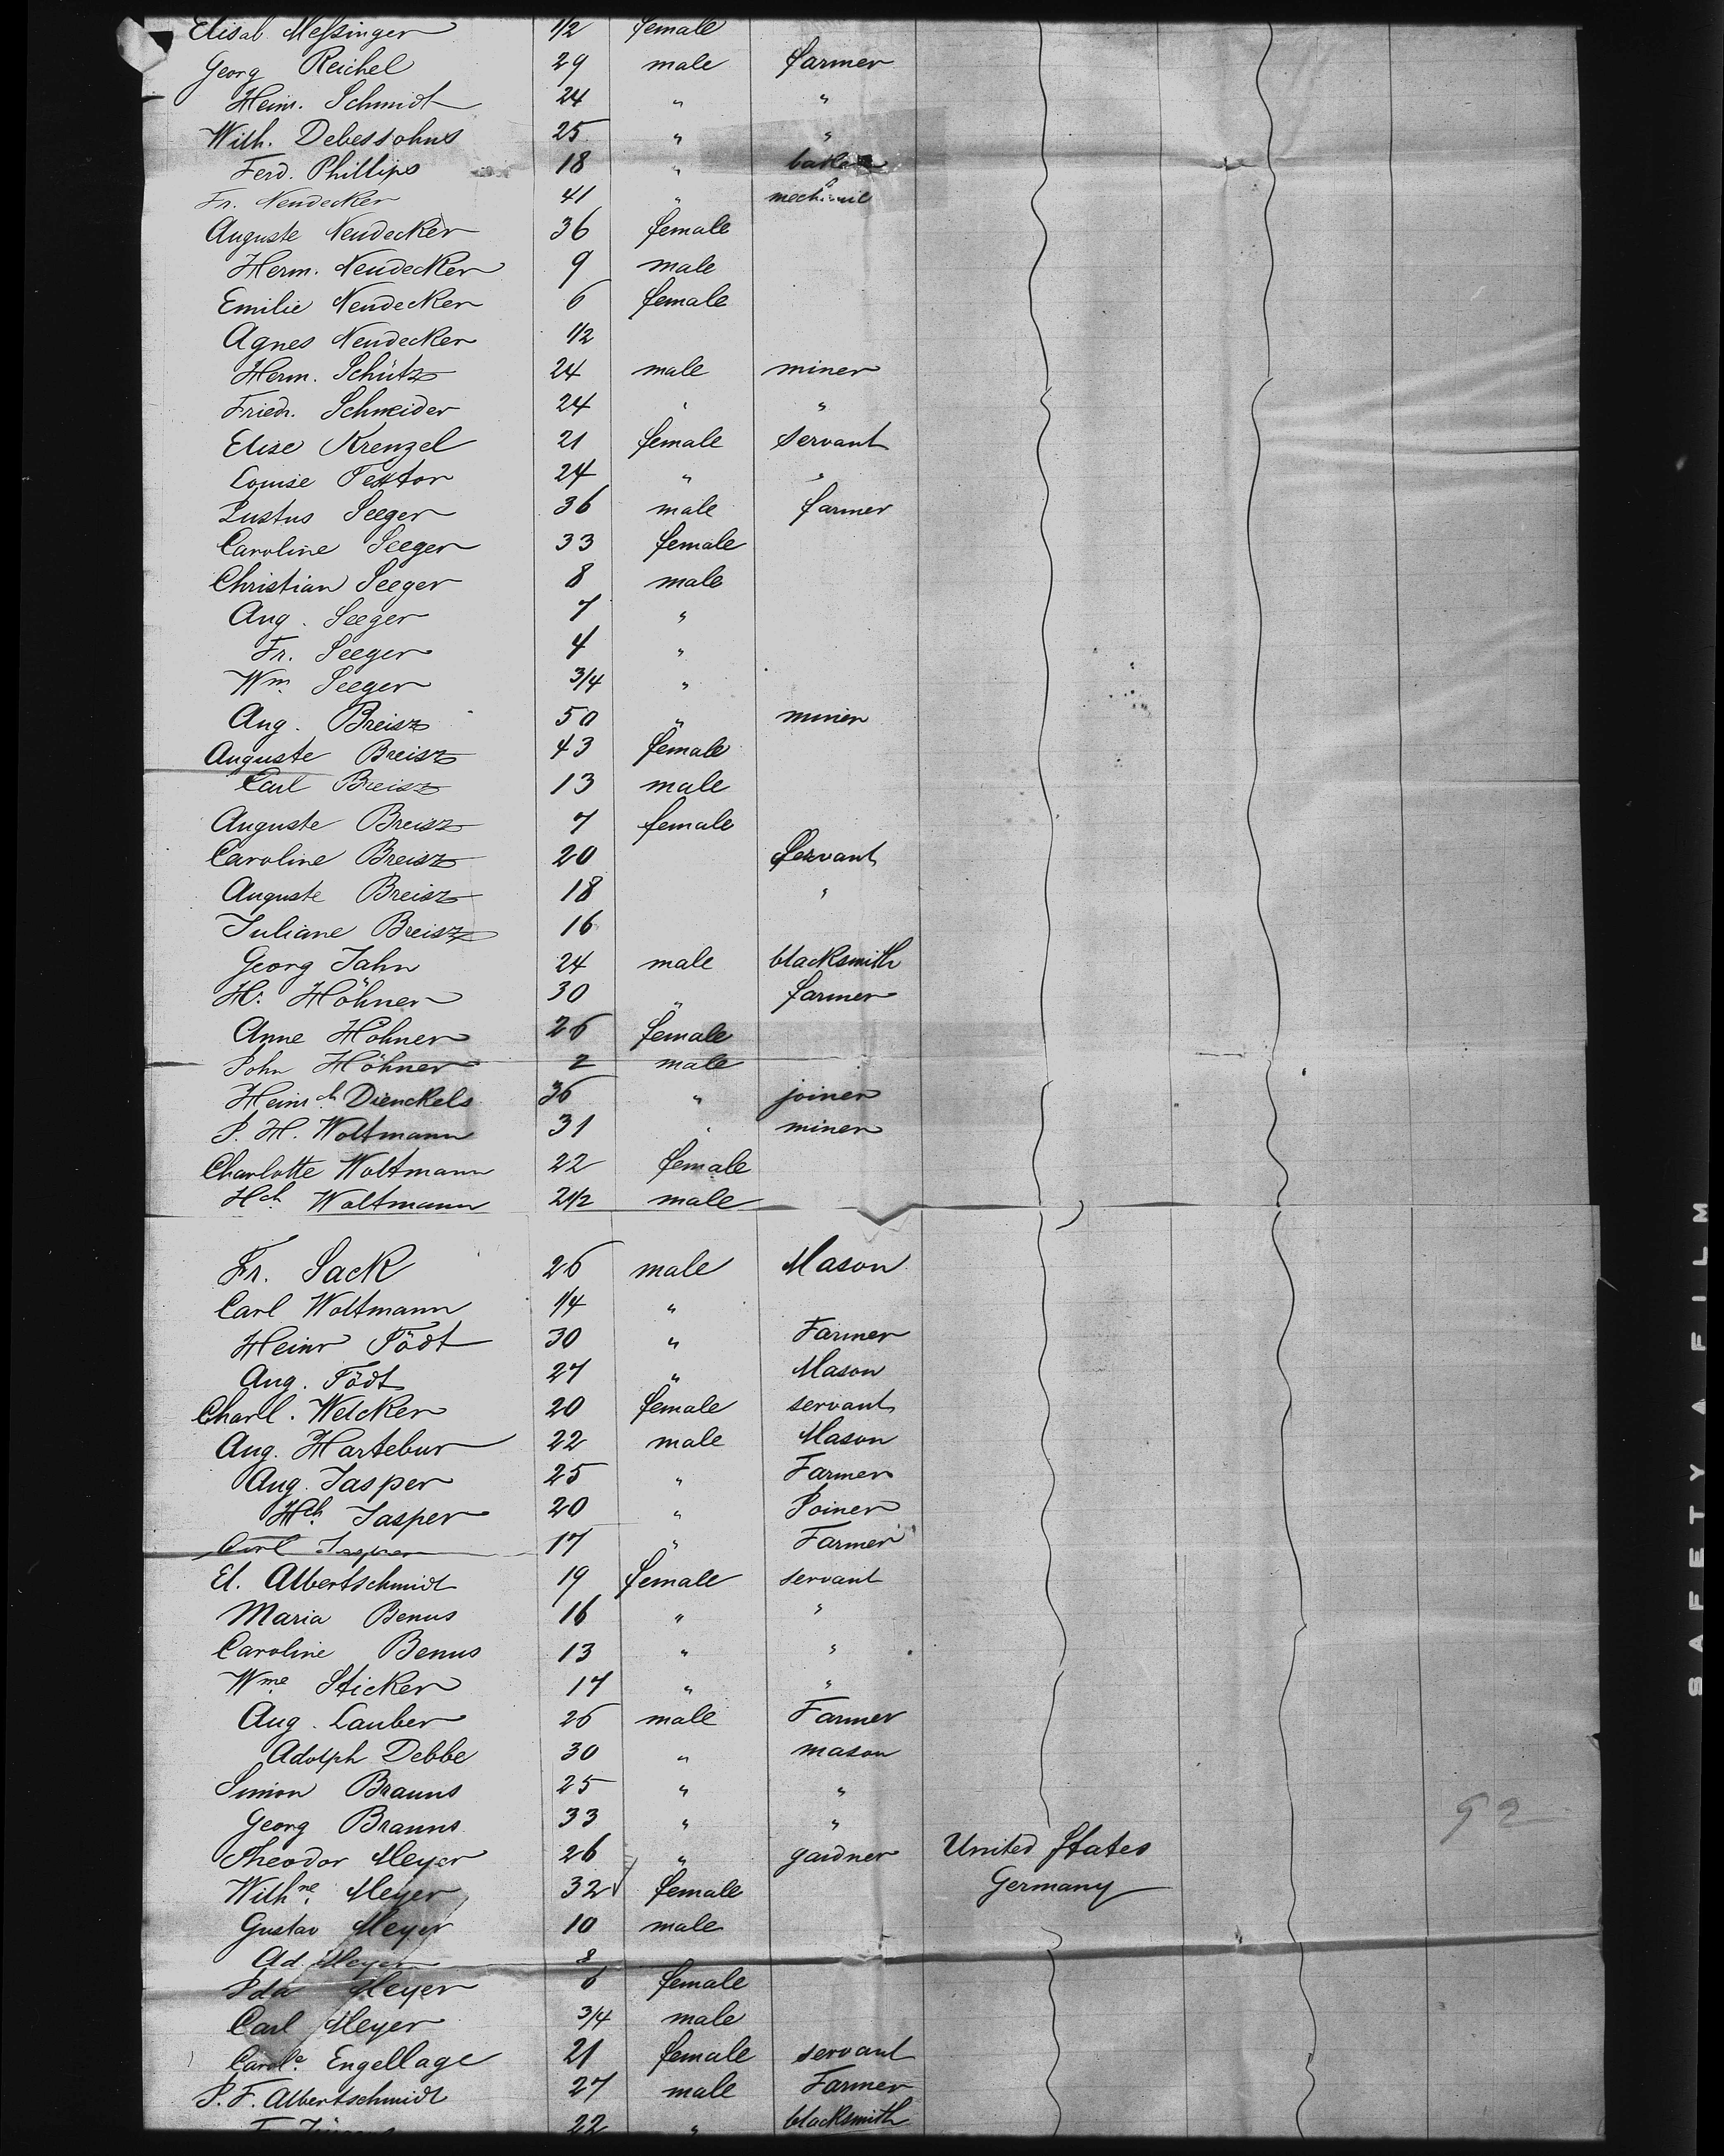 Elisab. Meſsinger 1/2 female
Georg Reichel 29 male farmer
Heinr. Schmidt 24 " "
Wilh. Debessohns 25 " "
Ferd. Phillips 18 "
Fr. Neudecker 41 " mechanic
Auguste Neudecker 36 female
Herm. Neudecker 9 male
Emilie Neudecker 6 female
Agnes Neudecker 1/2
Herm. Schütz 24 male miner
Friedr. Schneider 24 " "
Elise Krenzel 21 female servant
Louise Textor 24 " "
Justus Seeger 36 male farmer
Caroline Seeger 33 female
Christian Seeger 8 male
Aug. Seeger 7 "
Fr. Seeger 4 "
Wm. Seeger 3/4 "
Aug. Breisz 50 " miner
Auguste Breisz 43 female
Carl Breisz 13 male
Auguste Breisz 7 female
Caroline Breisz 20 Servant
Auguste Breisz 18 "
Juliane Breisz 16
Georg Jahn 24 male blacksmith
H. Höhner 30 " farmer
Anne Höhner 26 female
John Höhner 2 male
Heinrch Dienckels 36 " joiner
J. H. Woltmann 31 " miner
Charlotte Woltmann 22 female
Hch. Woltmann 2 1/2 male
Fr. Sack 26 male Mason
Carl Woltmann 1/4 "
Heinr Födt 30 " Farmer
Aug. Födt 27 " Mason
Charl. Welcker 20 female servant
Aug. Hartebur 22 male Mason
Aug. Jasper 25 " Farmer
Hch. Jasper 20 " Joiner
Carl Jasper 17 " Farmer
El. Albertschmidt 19 female servant
Maria Benus 16 " "
Caroline Benus 13 " "
Wme Sticker 17 " "
Aug. Lauber 26 male Farmer
Adolph Debbe 30 " mason
Simon Brauns 25 " "
Georg Brauns 33 " "
92
Theodor Meyer 26 " gardner United States
Wilhne. Meyer 32 female Germany
Gustav Meyer 10 male
Ad. Meyer 8
Ida Meyer 6 female
Carl Meyer 3/4 male
Carole. Engellage 21 female servant
J. F. Albertschmidt 27 male Farmer
22 " blacksmith
SAFETY FILM